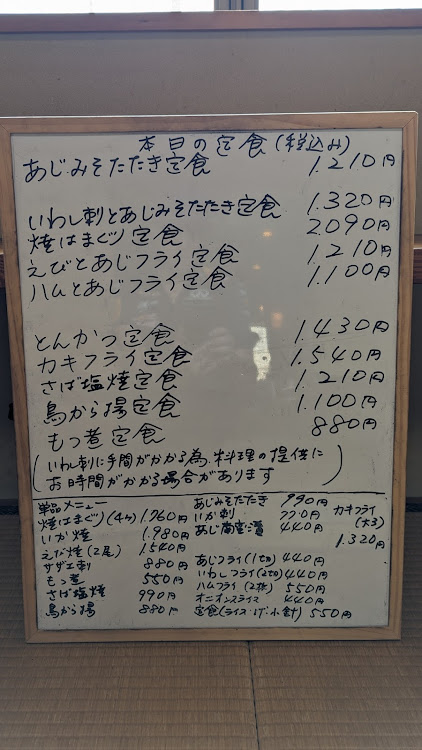 本日の定食(税込み)
あじみそたたき定食 1.210円
いわし刺とあじみそたたき定食 1.320円
焼はまぐり定食 2090円
えびとあじフライ定食 1.210円
ハムとあじフライ定食 1.100円
とんかつ定食 1.430円
カキフライ定食 1.540円
さば塩焼定食 1.210円
鳥から揚定食 1.100円
もつ煮定食 880円
(いわし刺に手間がかかる為、料理の提供に
お時間がかかる場合があります)
単品メニュー
焼はまぐり(4ケ) 1.760円
いか焼 1.980円
えび焼(2尾) 1.540円
サザエ刺 880円
もつ煮 550円
さば塩焼 990円
鳥から揚 880円
あじみそたたき 990円
いか刺 770円
あじ南蛮漬 440円
あじフライ(1切) 440円
いわしフライ(2切) 440円
ハムフライ(2枚) 550円
オニオンスライス 440円
定食(ライス・汁・小針) 550円
カキフライ
(大3)
1.320円